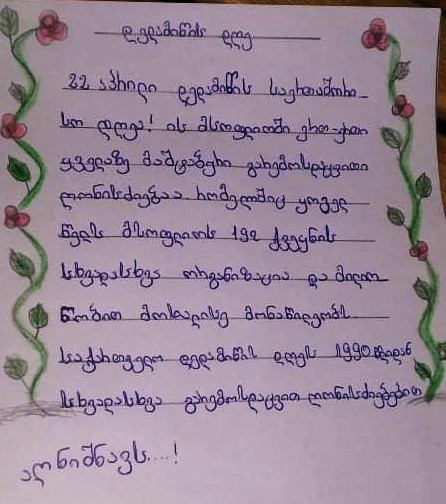 დედამიწის დღე
22 აპრილი დედამიწის საერთაშორი-
სო დღეა! ის მსოფლიოში ერთ-ერთი
ყველაზე მაშტაბური გარემოსდაცვითი
ღონისძიებაა რომელშიც ყოველ
წელს მსოფლიოს 192 ქვეყნის
სხვადასხვა ორგანიზაცია და მილიო
წობით მოხალისე მონაწილეობს
საქართველო დედამიწის დღეს 1990 წლიდან
სხვადასხვა გარემოსდაცვით ღონისძიებებით
აღნიშნავს....!